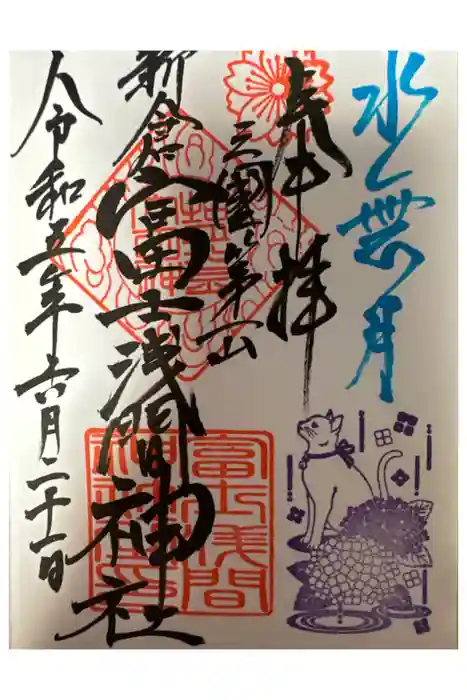 水無月
奉拝
三國第一山
新倉
富士浅間神社
令和五年六月二十一日
富士浅間